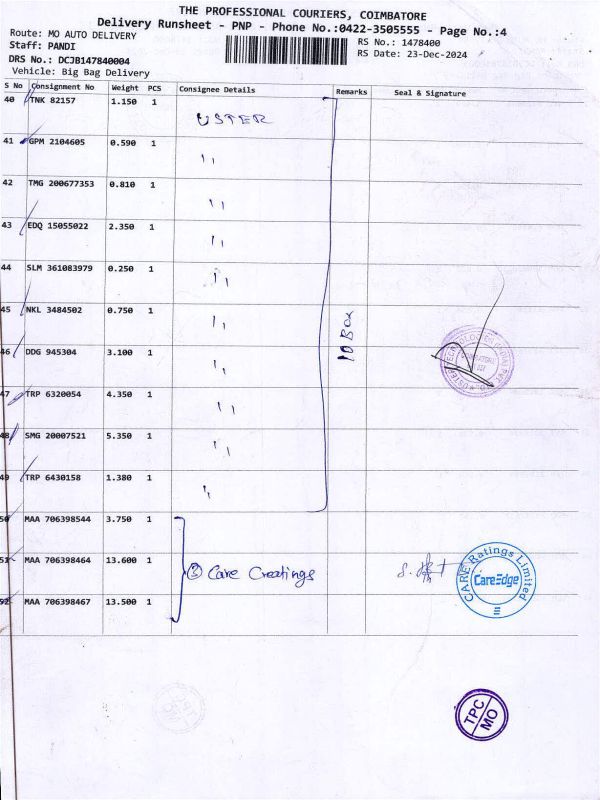 THE PROFESSIONAL COURIERS, COIMBATORE
Delivery Runsheet - PNP - Phone No.:0422-3505555 - Page No.:4
Route: MO AUTO DELIVERY
Staff: PANDI
RS No.: 1478400
DRS No.: DCJB147840004
RS Date: 23-Dec-2024
Vehicle: Big Bag Delivery
S No Consignment No Weight PCS Consignee Details Remarks Seal & Signature
40 TNK 82157 1.150 1 USTER
41 GPM 2104605 0.590 1 "
42 TMG 200677353 0.810 1 "
43 EDQ 15055022 2.350 1 "
44 SLM 361083979 0.250 1 "
45 NKL 3484502 0.750 1 "
10 Box
46 DDG 945304 3.100 1 "
47 TRP 6320054 4.350 1 "
48 SMG 20007521 5.350 1 "
49 TRP 6430158 1.380 1 "
50 MAA 706398544 3.750 1
51 MAA 706398464 13.600 1 ③ Care Creatings
52 MAA 706398467 13.500 1
CARE Ratings Limited
CareEdge
TPC
MO